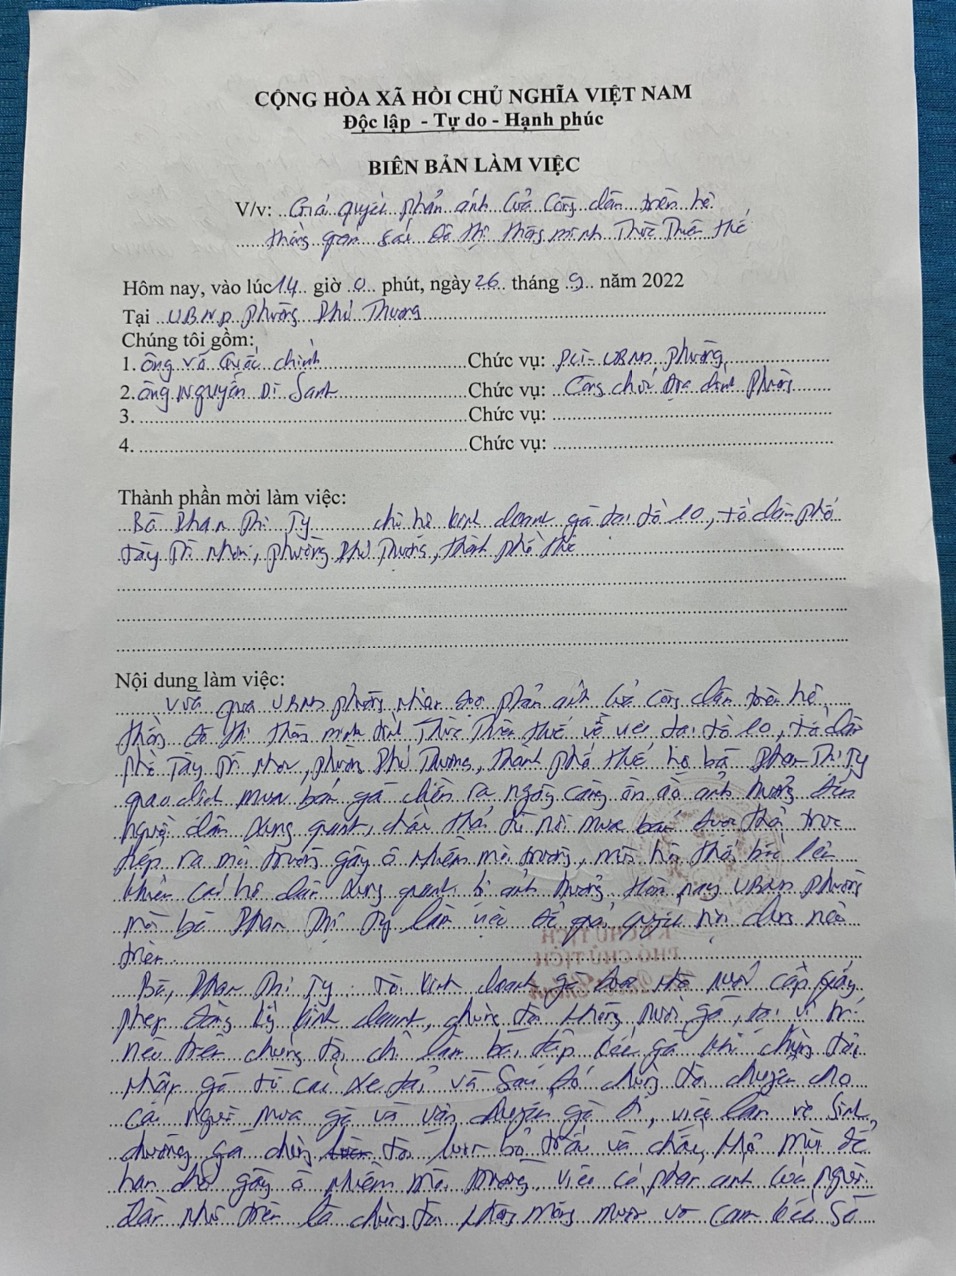 CỘNG HÒA XÃ HÒI CHỦ NGHĨA VIỆT NAM
Độc lập - Tự do - Hạnh phúc
BIÊN BẢN LÀM VIỆC
V/v: quyết phản ánh của công dân trên hệ
thống giám sát đô thị thông minh Thừa Thiên Huế
Hôm nay, vào lúc 14 giờ 0 phút, ngày 26 tháng 9 năm 2022
Tại UBND phường Phú Thượng
Chúng tôi gồm:
1. Ông Võ Quốc Chình Chức vụ: PCT-UBND phường
2. Ông Nguyễn Di Sanh Chức vụ: Công chức địa chính phường
3. Chức vụ:
4. Chức vụ:
Thành phần mời làm việc:
Bà Phan Thị Ty chủ hộ kinh doanh gà tại tổ 20, tổ dân phố
Tây Trì Nhơn, phường Phú Thượng, thành phố Huế
Nội dung làm việc:
Vừa qua UBND phường nhận được phản ánh của công dân trên hệ
thống đô thị thông minh tỉnh Thừa Thiên Huế về việc tại tổ 20, tổ dân
phố Tây Trì Nhơn, phường Phú Thượng, thành phố Huế, hộ bà Phan Thị Ty
giao dịch mua bán gà diễn ra ngày càng ồn ào ảnh hưởng đến
người dân xung quanh, chất thải từ nơi mua bán được thải trực
tiếp ra môi trường gây ô nhiễm môi trường, mùi hôi thối bốc lên
khiến các hộ dân xung quanh bị ảnh hưởng. Hôm nay UBND phường
mời bà Phan Thị Ty làm việc để giải quyết nội dung nêu
trên.
KT.CHỦ TỊCH
PHÓ CHỦ TỊCH
Bà, Phan Thị Ty: Tôi kinh doanh gà được nhà nước cấp giấy
phép đăng ký kinh doanh, chúng tôi không nuôi gà, tại vị trí
nêu trên chúng tôi chỉ làm bãi tập kết gà khi chúng tôi
nhập gà từ các xe tải và sau đó chúng tôi chuyển cho
các người mua gà và vận chuyển gà đi, việc làm vệ sinh
chuồng gà chúng tôi luôn bỏ trấu và chất khử mùi để
hạn chế gây ô nhiễm môi trường. Việc có phản ánh của người
dân như trên là chúng tôi không mong muốn và cam kết sẽ